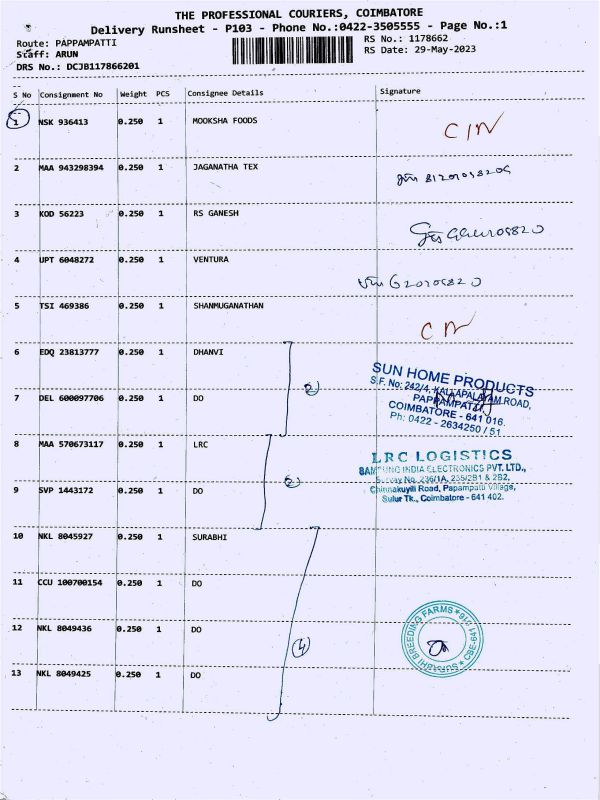 THE PROFESSIONAL COURIERS, COIMBATORE
Delivery Runsheet - P103 - Phone No.:0422-3505555 - Page No.:1
Route: PAPPAMPATTI RS No.: 1178662
Staff: ARUN RS Date: 29-May-2023
DRS No.: DCJB117866201
S No Consignment No Weight PCS Consignee Details Signature
1 NSK 936413 0.250 1 MOOKSHA FOODS
2 MAA 943298394 0.250 1 JAGANATHA TEX
3 KOD 56223 0.250 1 RS GANESH
4 UPT 6048272 0.250 1 VENTURA
5 TSI 469386 0.250 1 SHANMUGANATHAN
6 EDQ 23813777 0.250 1 DHANVI
SUN HOME PRODUCTS
S.F. No: 242/4, KALLAPALAYAM ROAD,
7 DEL 600097706 0.250 1 DO PAPPAMPATTI,
COIMBATORE - 641 016.
Ph: 0422 - 2634250 / 51
8 MAA 570673117 0.250 1 LRC
LRC LOGISTICS
SAMSUNG INDIA ELECTRONICS PVT. LTD.,
Survey No. 236/1A, 235/2B1 & 2B2,
9 SVP 1443172 0.250 1 DO Chinnakuyili Road, Papampatti Village,
Sulur Tk., Coimbatore - 641 402.
10 NKL 8045927 0.250 1 SURABHI
11 CCU 100700154 0.250 1 DO
12 NKL 8049436 0.250 1 DO
SURABHI BREEDING FARMS
4
13 NKL 8049425 0.250 1 DO